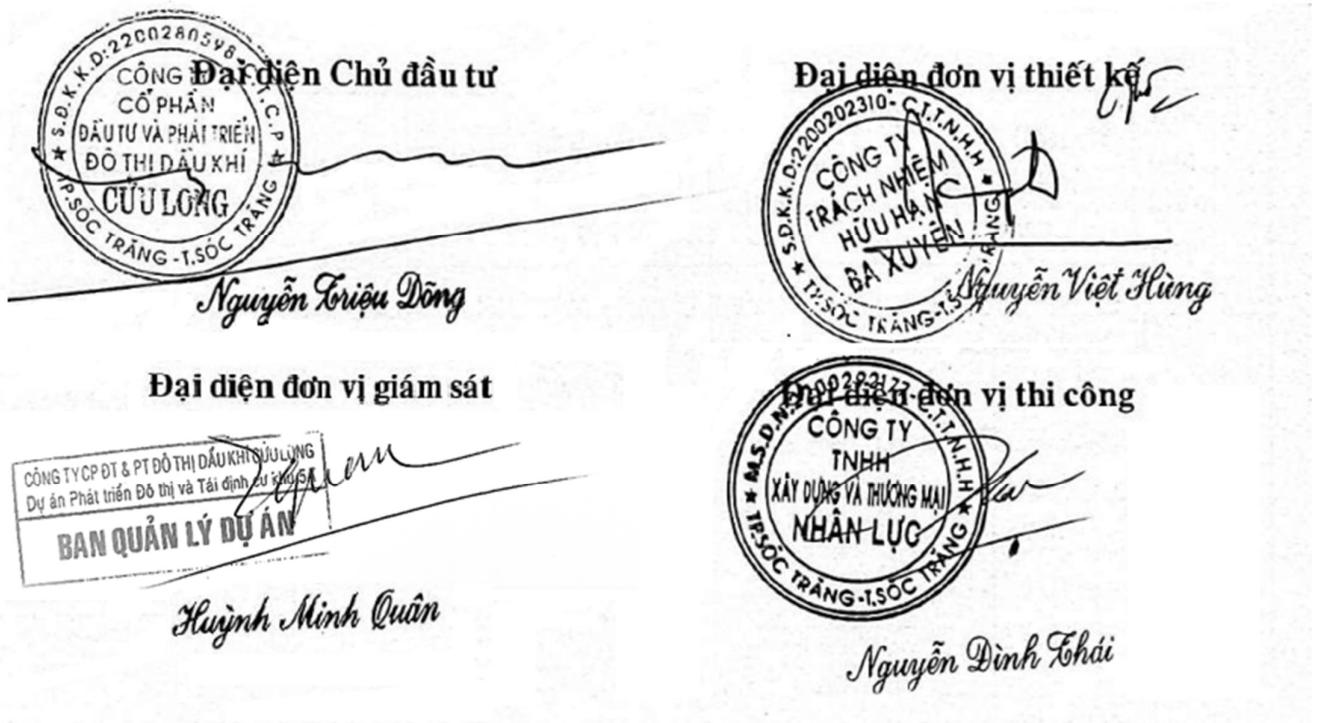 Đại diện Chủ đầu tư
S.Đ.K.K.D:2200280598-C.T.C.P
CÔNG TY
CỔ PHẦN
ĐẦU TƯ VÀ PHÁT TRIỂN
ĐÔ THỊ DẦU KHÍ
CỬU LONG
TP.SÓC TRĂNG-T.SÓC TRĂNG
Nguyễn Triệu Dõng
Đại diện đơn vị thiết kế
S.Đ.K.K.D:2200202310-C.T.T.N.H.H
CÔNG TY
TRÁCH NHIỆM
HỮU HẠN
BA XUYÊN
TP.SÓC TRĂNG-T.SÓC TRĂNG
Nguyễn Việt Hùng
Đại diện đơn vị giám sát
CÔNG TY CP ĐT & PT ĐÔ THỊ DẦU KHÍ CỬU LONG
Dự án Phát triển Đô thị và Tái định cư khu 5A
BAN QUẢN LÝ DỰ ÁN
Huỳnh Minh Quân
Đại diện đơn vị thi công
M.S.D.N: C.T.T.N.H.H
CÔNG TY
TNHH
XÂY DỰNG VÀ THƯƠNG MẠI
NHÂN LỰC
TP.SÓC TRĂNG-T.SÓC TRĂNG
Nguyễn Đình Thái